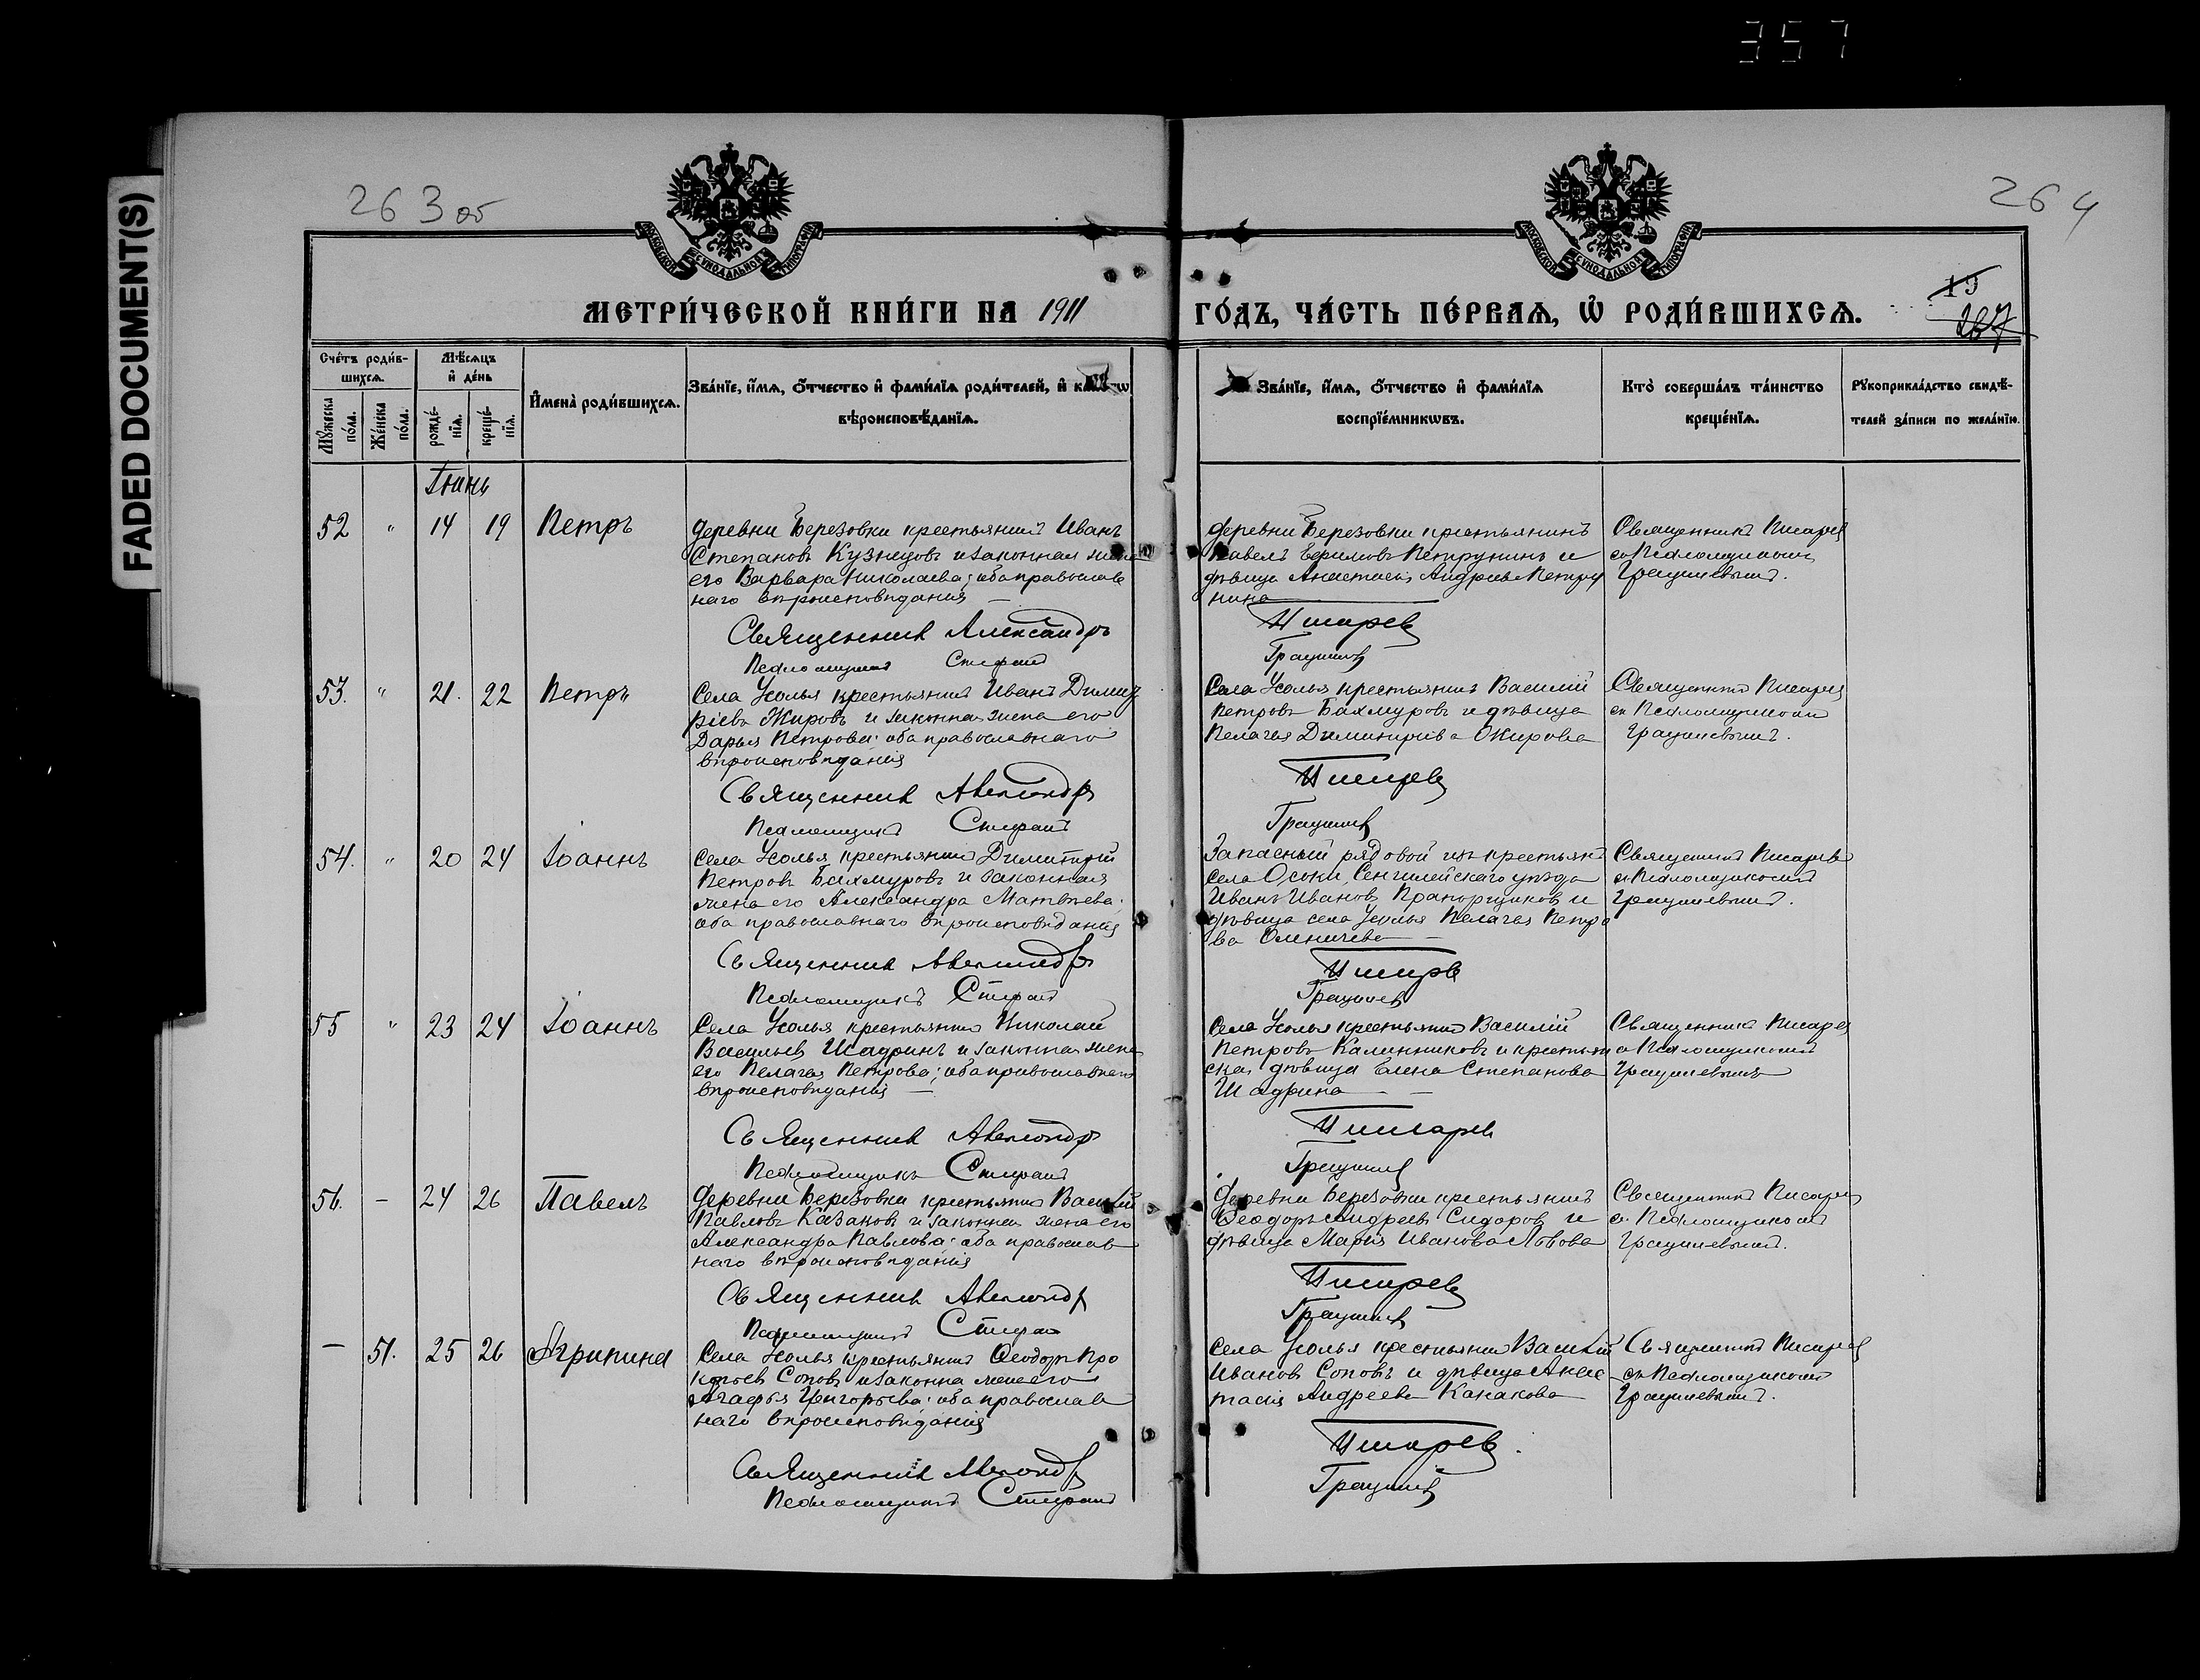 357
FADED DOCUMENT(S)
263 об
264
МОСКОВСКОЙ СУНОДАЛЬНОЙ ТИПОГРАФІИ
МОСКОВСКОЙ СУНОДАЛЬНОЙ ТИПОГРАФІИ
МЕТРИ́ЧЕСКОЙ КНИ́ГИ НА 1911
ГО́ДЪ, ЧА́СТЬ ПЕ́РВАЯ, Ѿ РОДИ́ВШИХСЯ.
267
Счетъ родив-
шихся.
Мужеска пола.
Женска пола.
Мѣсяцъ
и день
рожде-
нія.
креще-
нія.
Имена родившихся.
Званіе, имя, отчество и фамилія родителей, и
вѣроисповѣданія.
Званіе, имя, отчество и фамилія
воспріемниковъ.
Кто совершалъ таинство
крещенія.
Рукоприкладство свидѣ-
телей записи по желанію.
Іюнь
52 " 14 19 Петръ
деревни Березовки крестьянинъ Иванъ
Степановъ Кузнецовъ и законная жена
его Варвара Николаева; оба православ
наго вѣроисповѣданія
Священникъ Александръ
Псаломщикъ Стефанъ
деревни Березовки крестьянинъ
Павелъ Ефимовъ Петрунинъ и
дѣвица Анастасія Андреева Петру
нина
Писарев
Грацилев
Священникъ Писарев
съ Псаломщикомъ
53. " 21. 22 Петръ
Села Усолья крестьянинъ Иванъ Димит
ріевъ Жировъ и законная жена его
Дарья Петрова; оба православнаго
вѣроисповѣданія
Священникъ Александръ
Псаломщикъ Стефанъ
Села Усолья крестьянинъ Василій
Петровъ Бахмуровъ и дѣвица
Пелагея Димитріева Жирова
Писарев
Священникъ Писарев
съ Псаломщикомъ
54. " 20 24 Іоаннъ
Села Усолья крестьянинъ Димитрій
Петровъ Бахмуровъ и законная
жена его Александра Матвѣева;
оба православнаго вѣроисповѣданія
Священникъ Александръ
Псаломщикъ Стефанъ
Запасный рядовой изъ крестьянъ
села Осоки, Сенгилейскаго уѣзда
Иванъ Ивановъ Прапорщиковъ и
дѣвица села Усолья Пелагея Петро
ва
Писарев
Священникъ Писаревъ
съ Псаломщикомъ
55 " 23 24 Іоаннъ
Села Усолья крестьянинъ Николай
Васильевъ Шадринъ и законная жена
его Пелагея Петрова; оба православнаго
вѣроисповѣданія
Священникъ Александръ
Псаломщикъ Стефанъ
Села Усолья крестьянинъ Василій
Петровъ Калинниковъ и крестьян
ская дѣвица Елена Степанова
Шадрина
Писарев
Священникъ Писарев
съ Псаломщикомъ
56. - 24 26 Павелъ
Деревни Березовки крестьянинъ Василій
Павловъ Казаковъ и законная жена его
Александра Павлова; оба православ
наго вѣроисповѣданія
Священникъ Александръ
Псаломщикъ Стефанъ
Деревни Березовки крестьянинъ
Ѳеодоръ Андреевъ Сидоровъ и
дѣвица Марія Иванова
Писарев
Священникъ Писарев
съ Псаломщикомъ
- 51. 25 26 Агрипина
Села Усолья крестьянинъ Ѳеодоръ Про
кофьевъ Соповъ и законная жена его
Агафья Григорьева; оба православ
наго вѣроисповѣданія
Священникъ Александръ
Псаломщикъ Стефанъ
Села Усолья крестьянинъ Василій
Ивановъ Соповъ и дѣвица Анас
тасія Андреева Канакова
Писарев
Священникъ Писарев
съ Псаломщикомъ